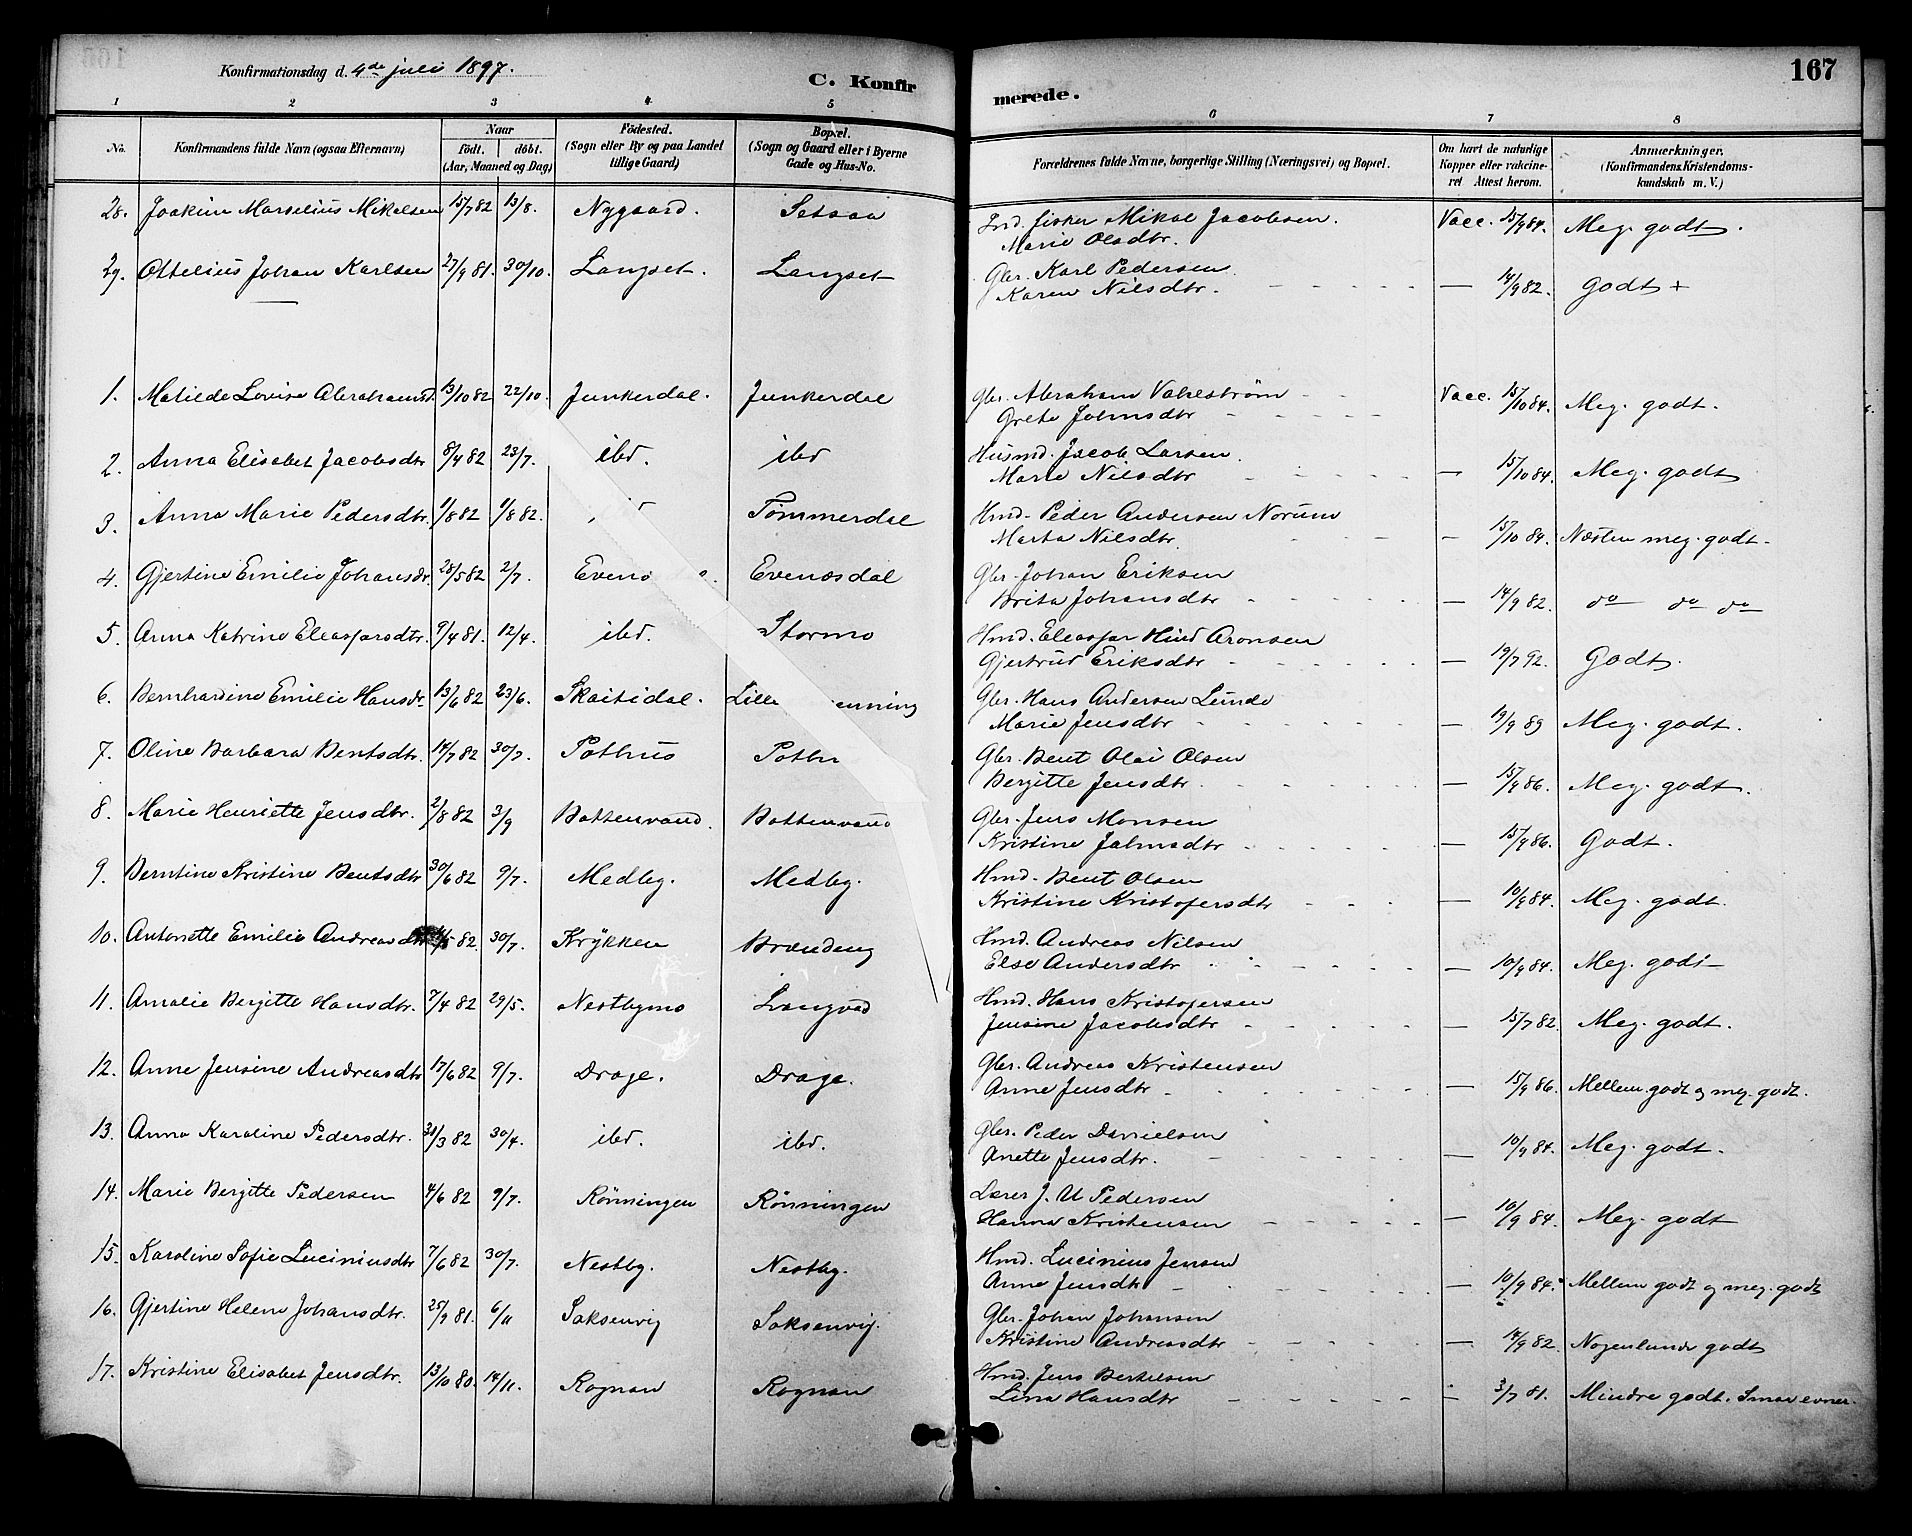 Konfirmationsdag d. 4de juli 1897.
C. Konfirmerede.
167
1 2 3 4 5 6 7 8
No. Konfirmandens fulde Navn (ogsaa Efternavn) Naar födt. döbt. (Aar, Maaned og Dag) Födested. (Sogn eller By og paa Landet tillige Gaard) Bopæl. (Sogn og Gaard eller i Byerne Gade og Hus-No. Forældrenes fulde Navne, borgerlige Stilling (Næringsvei) og Bopæl. Om havt de naturlige Kopper eller vakcineret Attest herom. Anmærkninger. (Konfirmandens Kristendomskundskab m. V.)
28. Joakim Marselius Mikelsen 15/7 82 13/8. Nygaard. Setsaa Ind. fisker Mikal Jacobsen. Vacc. 15/9 84. Meg. godt.
Marie Olsdtr.
29. Ottelius Johan Karlsen 27/9 81. 30/10. Langset. Langset Gbr. Karl Pedersen
Karen Nilsdtr. — 14/9 82. Godt +
1. Matilde Lovise Abrahamsd. 13/10 82 22/10. Junkerdal. Junkerdal Gbr. Abraham Valestrøm Vacc. 15/10 84. Meg. godt.
Grete Johnsdtr
2. Anna Elisabet Jacobsdtr 8/4 82 23/7. ibd. ibd Husmd. Jacob Larsen
Marie Nilsdtr — 15/10 84. Meg. godt
3. Anna Marie Pedersdtr. 1/8 82 1/8 82. Tømmerdal Hmd. Peder Andersen Norum
Marta Nilsdtr. — 15/10 84. Næsten meg. godt.
4. Gjertine Emilie Johansdr. 28/5 82 2/7. Evenæsdal Gbr. Johan Eriksen
Brita Johansdtr — 14/9 82. do do do
5. Anna Katrine Eleasarsdtr. 9/4 81. 12/4. ibd. Stormo Hmd. Eleasar Hind Aronsen
Gjertrud Eriksdtr — 19/7 92. Godt.
6. Bernhardine Emilie Hansdr 13/6 82 23/6. Skaitidal. Lille Gbr. Hans Andersen Lunde
Marie Jensdtr — 19/9 89 Meg. godt.
7. Oline Barbara Bentsdtr. 14/7 82 30/7. Pothus Pothu Gbr. Bent Olai Olsen
Bergitte Jensdtr. — 15/9 86. Meg. godt.
8. Marie Henriette Jensdtr. 2/8 82 3/9 Bottenvand. Bottenvand Gbr. Jens Monsen
Kristine Johnsdtr — 15/9 86. Godt.
9. Berntine Kristine Bentsdtr 30/6 82 9/7. Medby. Medby. Hmd. Bent Olsen
Kristine Kristofersdtr — 10/9 84. Meg. godt.
10. Antonette Emilie Andreasdtr /5 82. 30/7. Krykken Brændeng Hmd. Andreas Nilsen
Else Andersdtr — 10/9 84. Meg. godt
11. Amalie Bergitte Hansdtr. 7/4 82 29/5. Nestbymo Langvad Hmd. Hans Kristofersen
Jensine Jacobsdtr — 15/7 82. Meg. godt.
12. Anne Jensine Andreasdtr 17/6 82 9/7. Drage. Drage. Gbr. Andreas Kristensen
Anne Jensdtr — 15/9 86. Mellem godt og meg. godt.
13. Anna Karoline Pedersdtr. 31/3 82 30/4. ibd. ibd. Gbr. Peder Danielsen
Anette Jensdtr. — 10/9 84. Meg. godt.
14. Marie Bergitte Pedersen 4/6 82 9/7. Rönningen Rönningen Lærer J. U Pedersen
Hanna Kristensen — 10/9 84. Meg. godt
15. Karoline Sofie Luciniusdtr 7/6 82 30/7. Nestby. Nestby. Hmd. Lucinius Jensen
Anne Jensdtr — 10/9 84. Mellem godt og meg. godt
16. Gjertine Helene Johansdtr. 25/9 81. 6/11 Saksenvig Saksenvig. Gbr. Johan Johansen
Kristine Andreasdtr — 14/9 82. Nogenlunde godt
17. Kristine Elisabet Jensdtr. 13/10 80. 14/11. Rognan Rognan Hmd. Jens Bertelsen
Lina Hansdtr — 3/7 81. Mindre godt. Smaa evner.